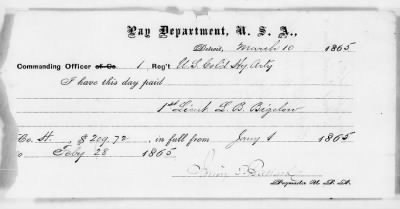 Pay Department, U. S. A.,
Detroit, March 10 1865
Commanding Officer of Co. 1 Reg't U.S. Cold Hy Arty
I have this day paid
1st Lieut L. B. Bigelow
Co. H. $209.72 in full from Jany 1 1865
o Feby 28 1865
Paymaster U. S. A.